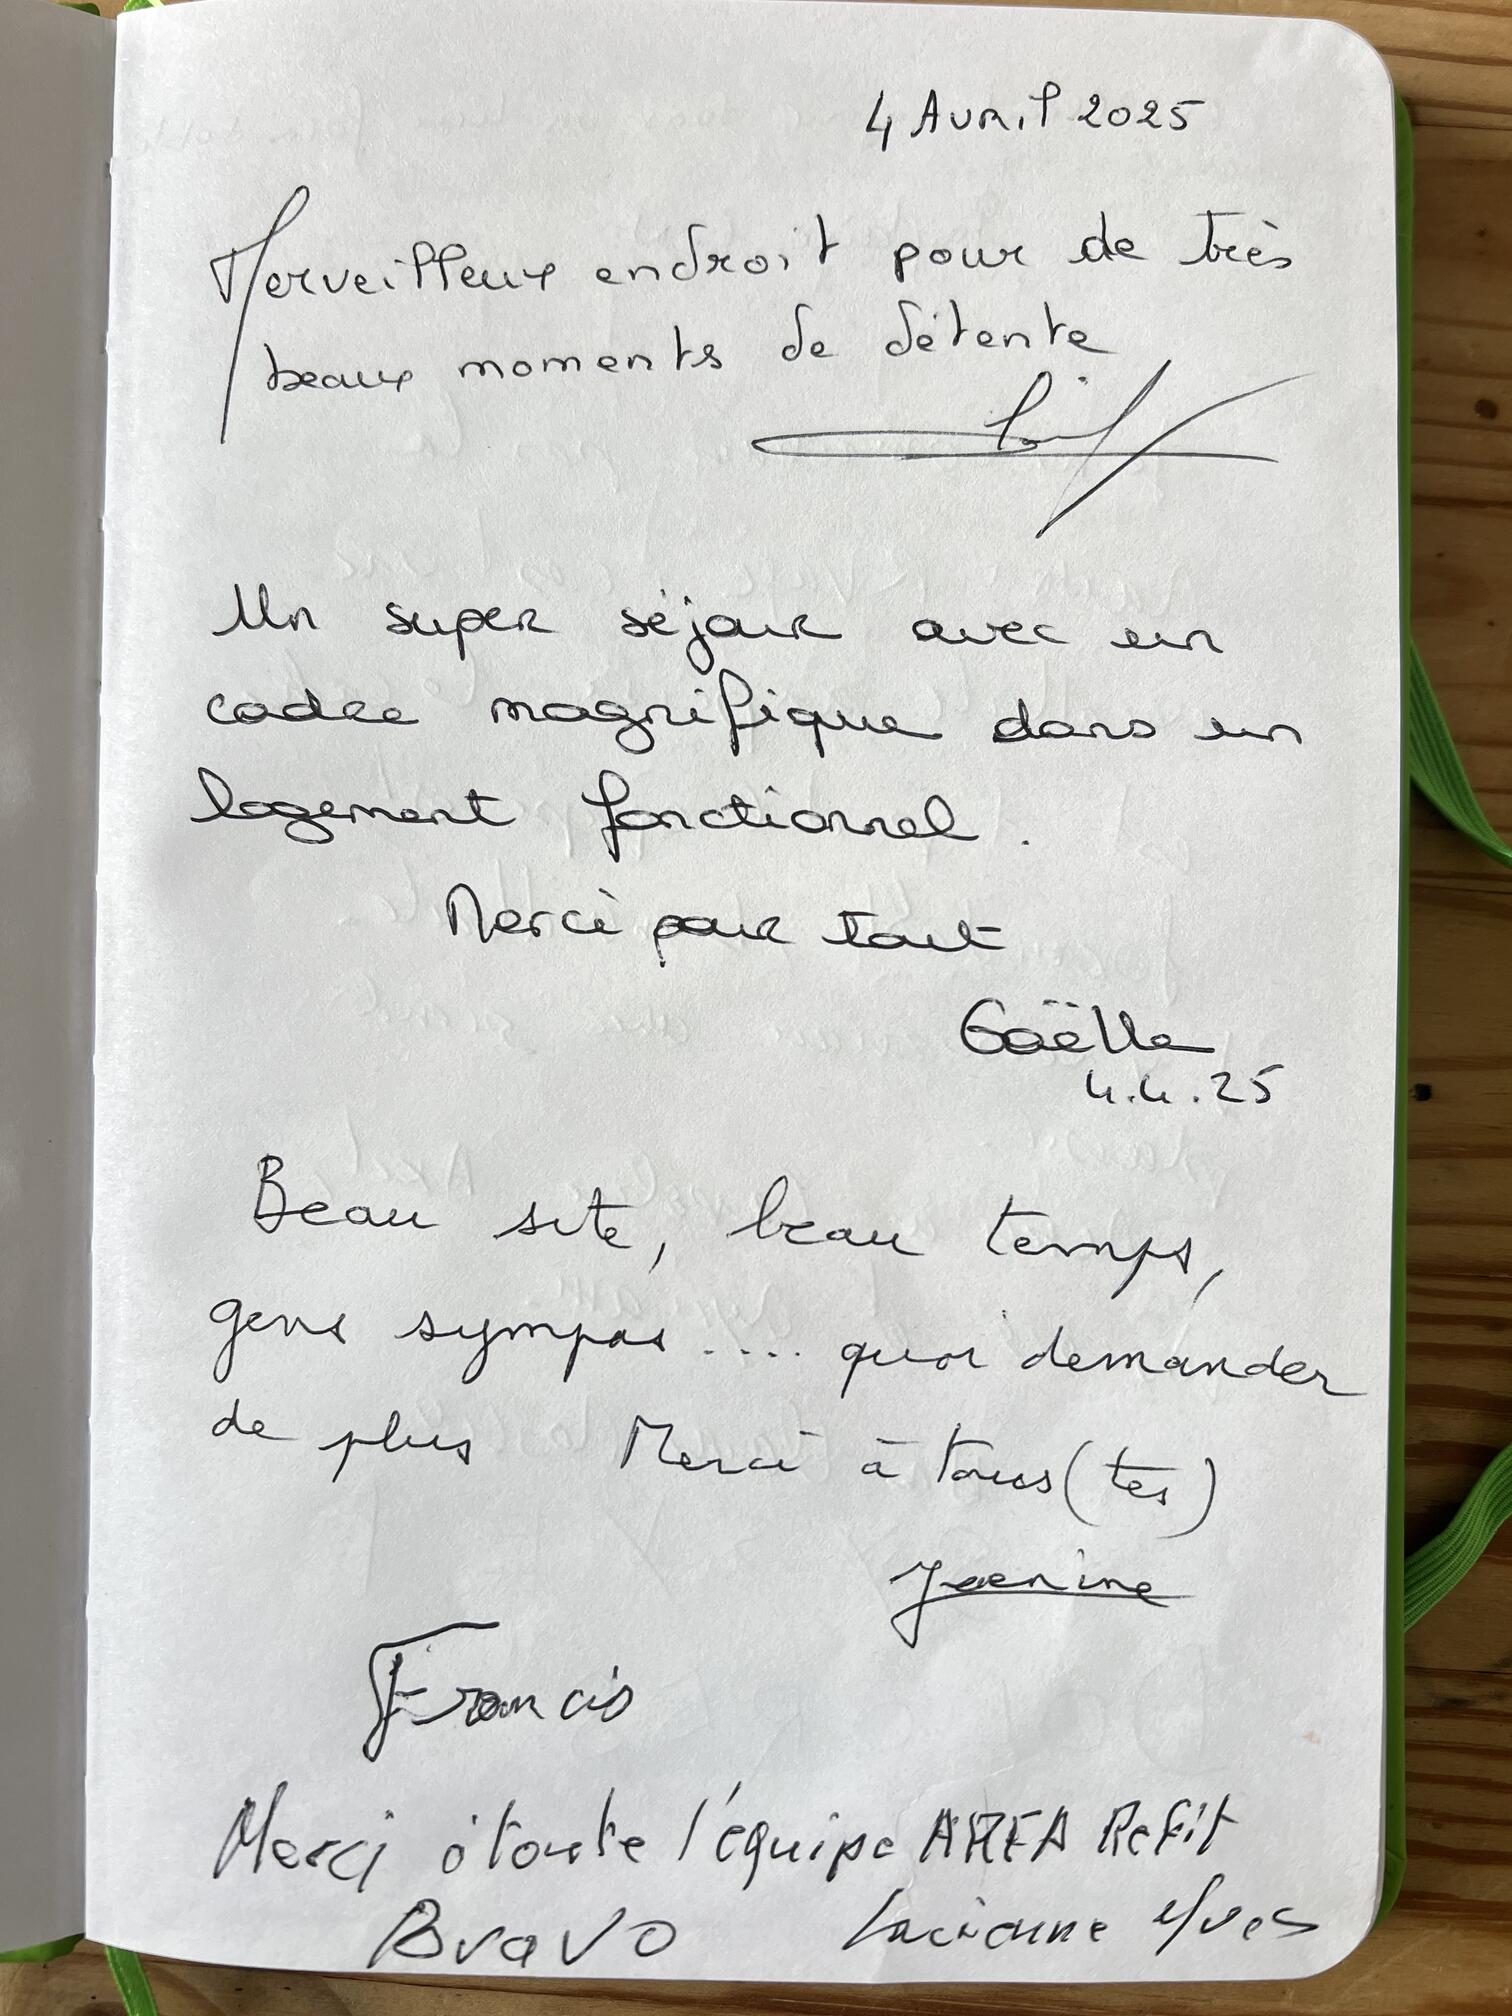 4 Avril 2025
Merveilleux endroit pour de très
beaux moments de détente
Un super séjour avec un
cadre magnifique dans un
logement fonctionnel.
Merci pour tout
Gaëlle
4.4.25
Beau site, beau temps,
gens sympas .... quoi demander
de plus Merci à tous (tes)
Jeanine
Francis
Merci à toute l'équipe Refit
Bravo Lucienne Yves